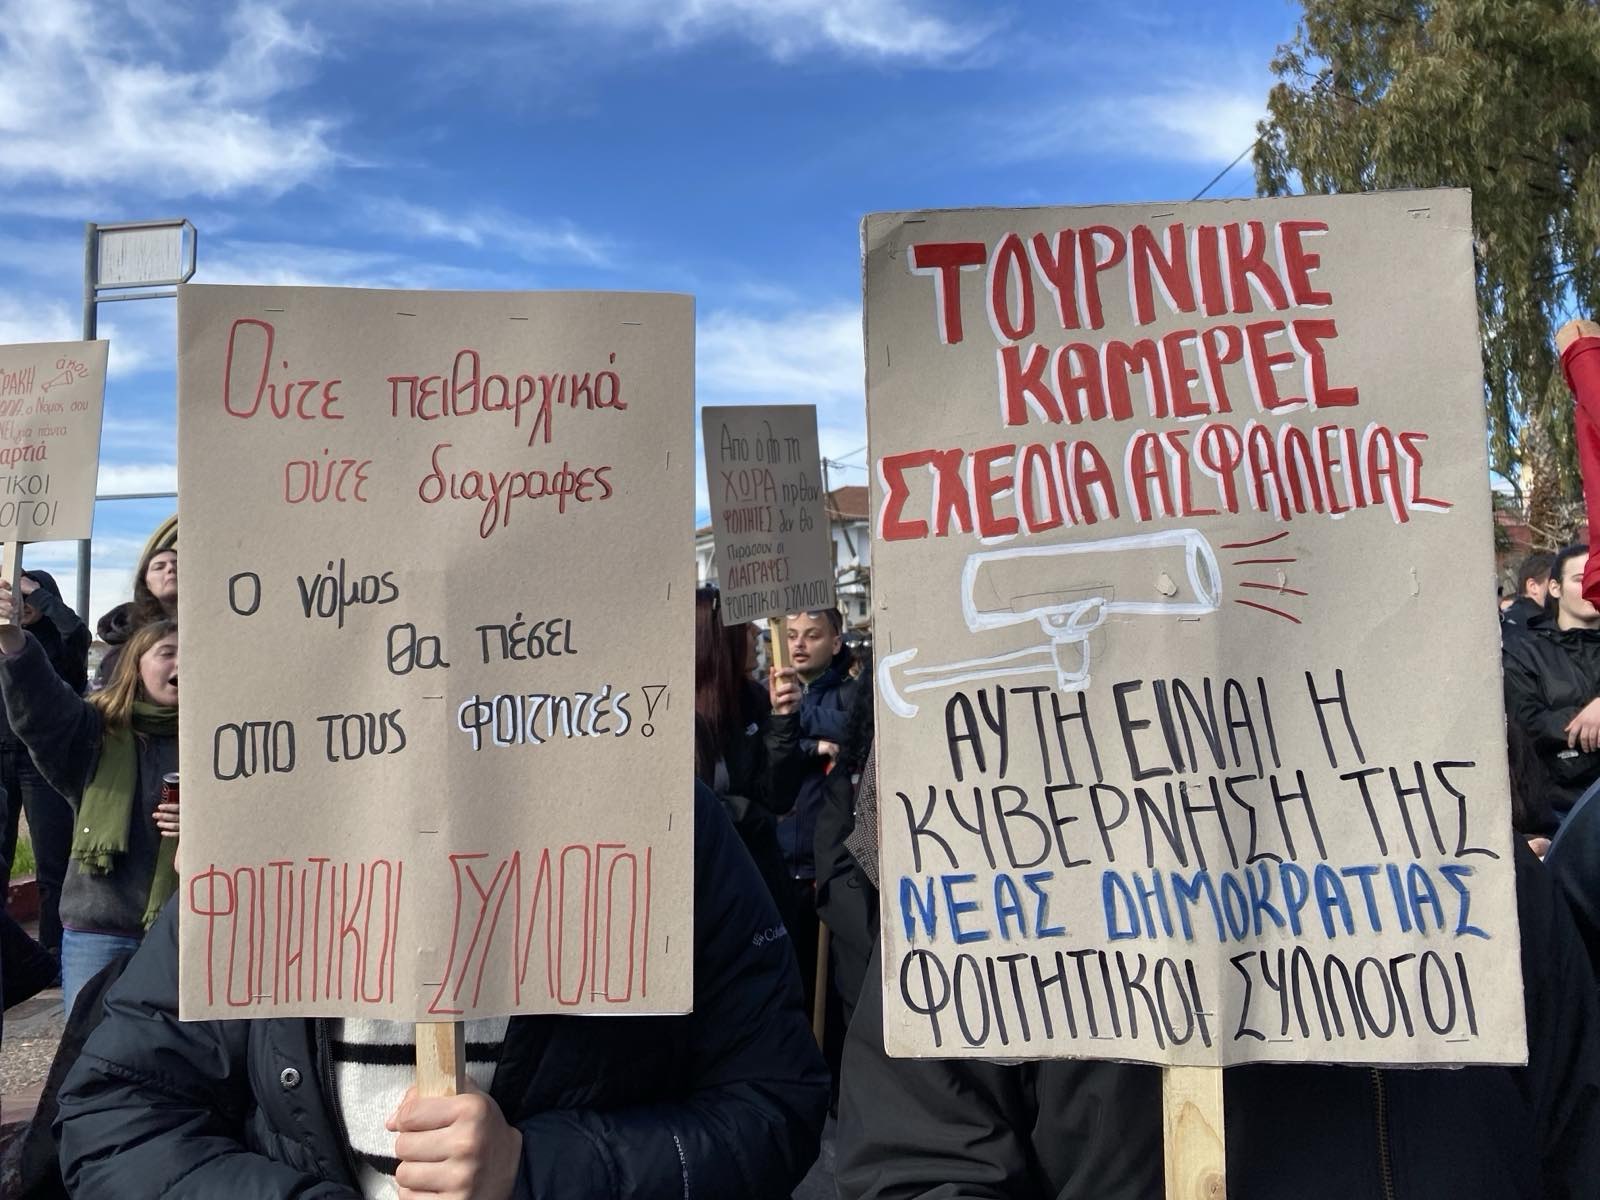 άκου
Νόμος σου
για πάντα
Ούτε πειθαρχικά
ούτε διαγραφες
Ο νόμος
θα πέσει
απο τους φοιτητές!
ΦΟΙΤΗΤΙΚΟΙ ΣΥΛΛΟΓΟΙ
Από όλη τη
ΧΩΡΑ ήρθαν
ΦΟΙΤΗΤΕΣ δεν θα
περάσουν οι
ΔΙΑΓΡΑΦΕΣ
ΦΟΙΤΗΤΙΚΟΙ ΣΥΛΛΟΓΟΙ
ΤΟΥΡΝΙΚΕ
ΚΑΜΕΡΕΣ
ΣΧΕΔΙΑ ΑΣΦΑΛΕΙΑΣ
ΑΥΤΗ ΕΙΝΑΙ Η
ΚΥΒΕΡΝΗΣΗ ΤΗΣ
ΝΕΑΣ ΔΗΜΟΚΡΑΤΙΑΣ
ΦΟΙΤΗΤΙΚΟΙ ΣΥΛΛΟΓΟΙ